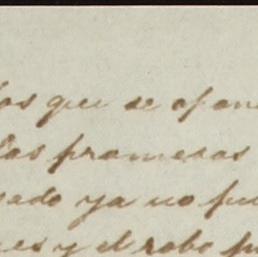 los que se opon
las promesas
sado ya no pu
es y el robo pu